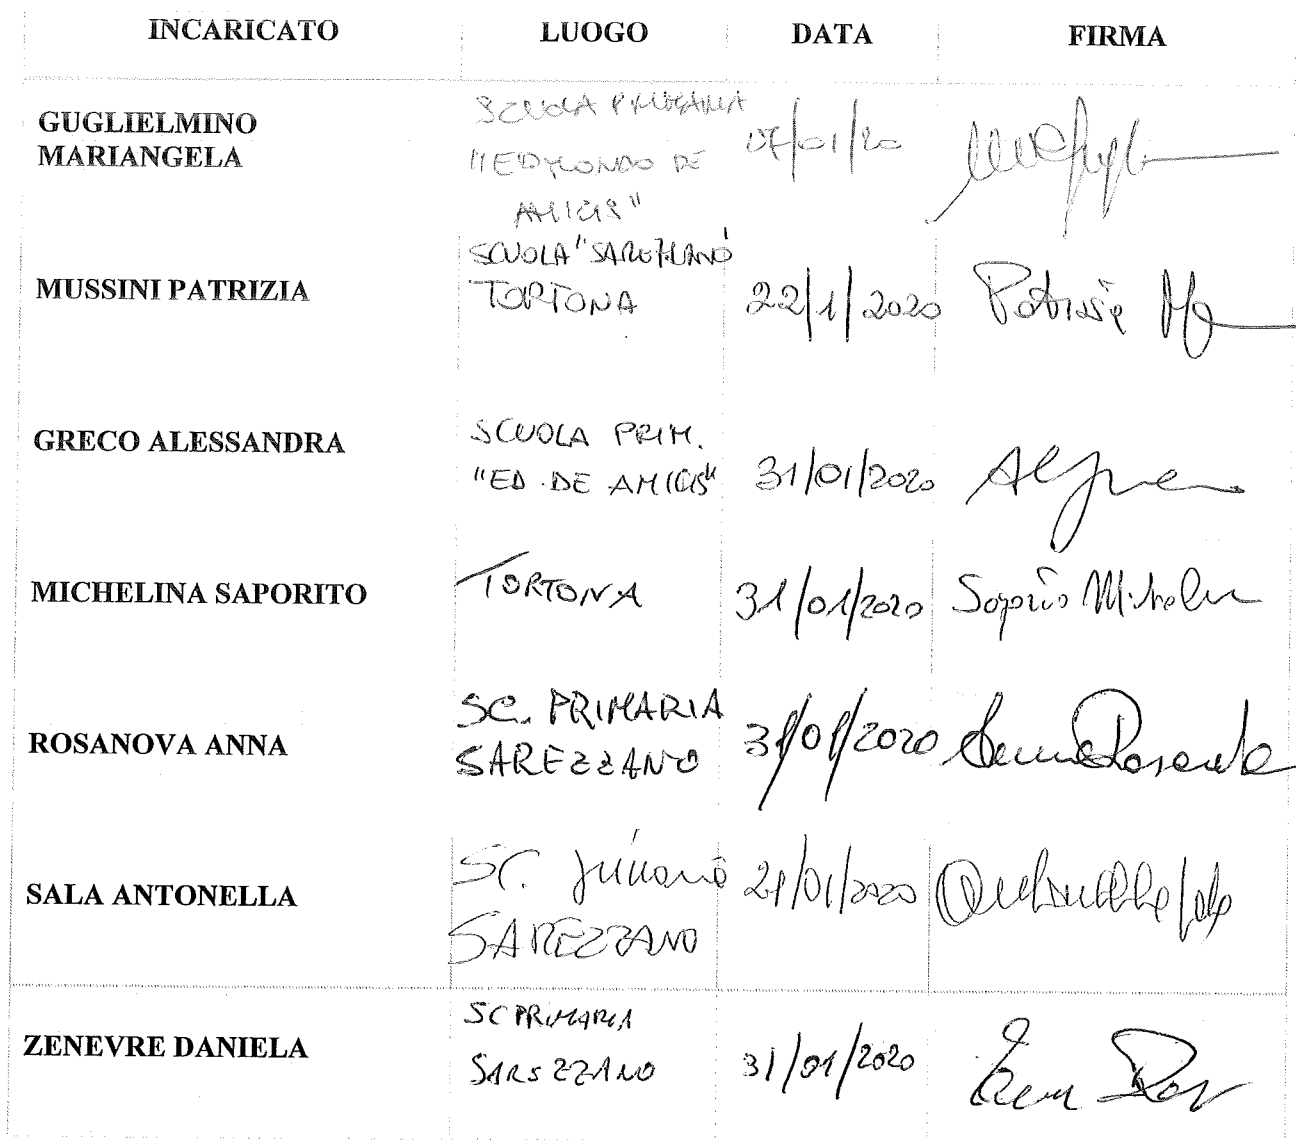 INCARICATO LUOGO DATA FIRMA
GUGLIELMINO
MARIANGELA
SCUOLA PRIMARIA
"EDMONDO DE
AMICIS"
07/01/20
MUSSINI PATRIZIA
SCUOLA "SAREZZANO"
TORTONA
22/1/2020
GRECO ALESSANDRA
SCUOLA PRIM.
"ED. DE AMICIS"
31/01/2020
MICHELINA SAPORITO
TORTONA
31/01/2020
ROSANOVA ANNA
SC. PRIMARIA
SAREZZANO
31/01/2020
Anna Rosanova
SALA ANTONELLA
SC.
SAREZZANO
/01/2020
Antonella Sala
ZENEVRE DANIELA
SC PRIMARIA
SAREZZANO
31/01/2020